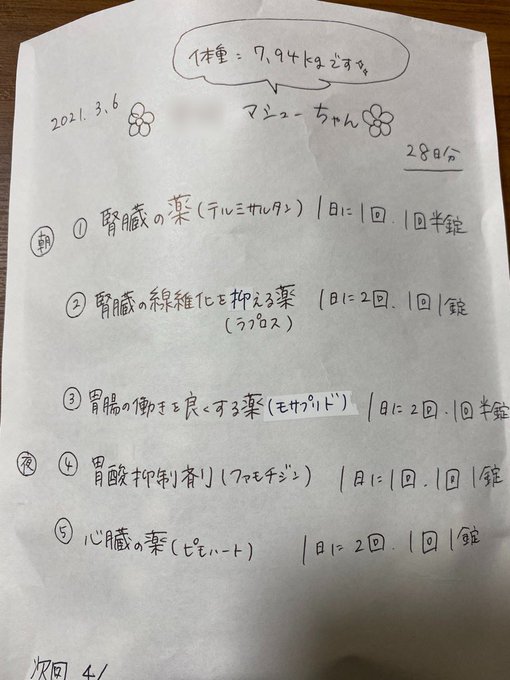 体重:7.94kgです
2021.3.6
マシューちゃん
28日分
朝 ① 腎臓の薬(テルミサルタン) 1日に1回.1回半錠
② 腎臓の線維化を抑える薬 1日に2回.1回1錠
(ラプロス)
③ 胃腸の働きを良くする薬(モサプリド) 1日に2回.1回半錠
夜 ④ 胃酸抑制剤(ファモチジン) 1日に1回.1回1錠
⑤ 心臓の薬(ピモハート) 1日に2回.1回1錠
次回 4/